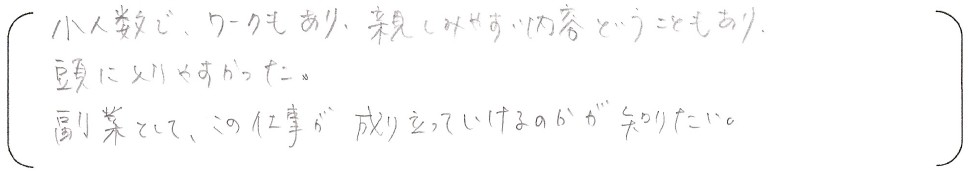 小人数で、ワークもあり、親しみやすい内容ということもあり、
頭に入りやすかった。
副業として、この仕事が成り立っていけるのかが知りたい。